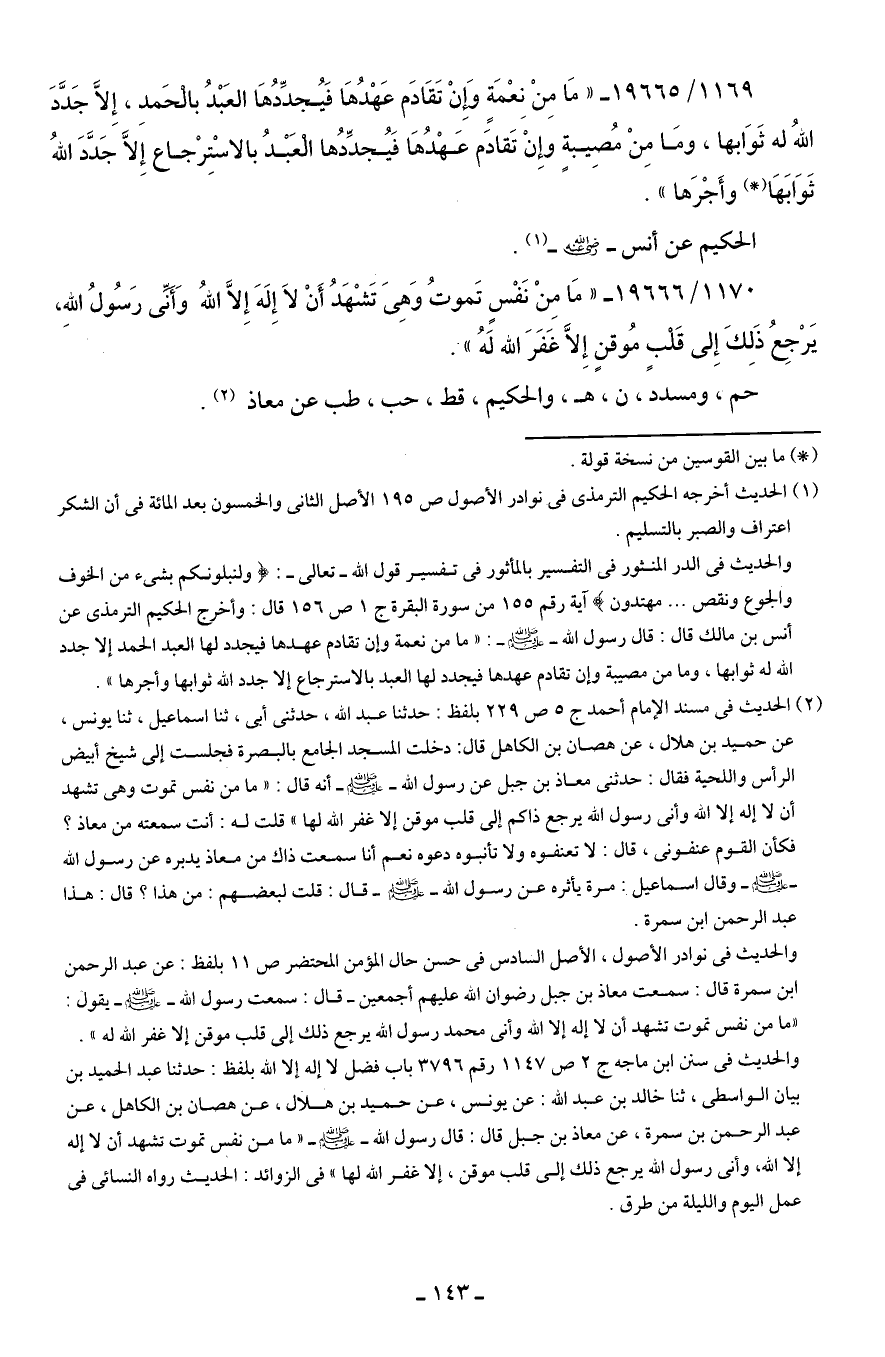 ١١٦٩/ ١٩٦٦٥ـ « مَا مِنْ نِعْمَةٍ وَإِنْ تَقَادَم عَهْدُهَا فَيُـجدِّدُهَا العَبْدُ بالْحَمدِ ، إِلاَّ جَدَّدَ
اللهُ له ثَوَابها ، ومَـا مِنْ مُصِيـبةٍ وإِنْ تَقادَم عَـهْدُهَا فَيُـجدِّدُها الْعَبْـدُ بالاسْتِرْجـاع إِلاَّ جَدَّدَ اللهُ
ثَوَابَهَا(*) وأَجْرَها » .
الحكيم عن أنس ـ رضي الله عنه ـ(١) .
١١٧٠/ ١٩٦٦٦ـ « مَا مِنْ نَفْسٍ تَموتُ وَهِىَ تَشْهَدُ أَنْ لاَ إِلَهَ إِلاَّ اللهُ وَأَنِّى رَسُولُ اللهِ،
يَرْجِعُ ذَلِكَ إِلى قَلْبٍ مُوقنٍ إِلاَّ غَفَرَ الله لَهُ » .
حم ، ومسدد ، ن ، هـ ، والحكيم ، قط ، حب ، طب عن معاذ (٢) .
(*) ما بين القوسين من نسخة قولة .
(١) الحديث أخرجه الحكيم الترمذى فى نوادر الأصول ص ١٩٥ الأصل الثانى والخمسون بعد المائة فى أن الشكر
اعتراف والصبر بالتسليم .
والحديث فى الدر المنـثور فى التفسير بالمأثور فى تـفسيـر قول الله ـ تعالى ـ : ﴿ ولنبلونـكم بشىء من الخوف
والجوع ونقص ... مهتدون ﴾ آية رقم ١٥٥ من سورة البقرة ج ١ ص ١٥٦ قال : وأخرج الحكيم الترمذى عن
أنس بن مالك قال : قال رسول الله ـ ﷺ ـ : « ما من نعمة وإن تقادم عهـدها فيجدد لها العبد الحمد إلا جدد
الله له ثوابها ، وما من مصيبة وإن تقادم عهدها فيجدد لها العبد بالاسترجاع إلا جدد الله ثوابها وأجرها » .
(٢) الحديث فى مسند الإمام أحمد ج ٥ ص ٢٢٩ بلفظ : حدثنا عبد الله ، حدثنى أبى ، ثنا اسماعيل ، ثنا يونس ،
عن حمـيد بن هلال ، عن هصان بن الكاهل قال: دخلت المسجد الجامع بالبـصرة فجلسـت إلى شيخ أبيض
الرأس واللحية فقال : حدثنى معاذ بن جبل عن رسول الله ـ ﷺ ـ أنه قال : « ما من نفس تموت وهى تشهد
أن لا إله إلا الله وأنى رسول الله يرجع ذاكم إلى قلب موقن إلا غفر الله لها » قلت لـه : أنت سمعته من معاذ ؟
فكأن القـوم عنفـونى ، قال : لا تعنفـوه ولا تأنبـوه دعوه نعـم أنا سمـعت ذاك من مـعاذ يدبره عن رسـول الله
ـ ﷺ ـ وقال اسـماعيل : مـرة يأثره عـن رسـول الله ـ ﷺ ـ قـال : قلت لبعضـهم : من هذا ؟ قال : هـذا
عبد الرحمن ابن سمرة .
والحديث فى نوادر الأصول ، الأصل السادس فى حسن حال المؤمن المحتضر ص ١١ بلفظ : عن عبد الرحمن
ابن سمرة قال : سمـعت معاذ بن جبل رضوان الله عليهم أجمعين ـ قـال : سمعت رسول الله ـ ﷺ ـ يقول :
«ما من نفس تموت تشهد أن لا إله إلا الله وأنى محمد رسول الله يرجع ذلك إلى قلب موقن إلا غفر الله له » .
والحديث فى سنن ابن ماجه ج ٢ ص ١١٤٧ رقم ٣٧٩٦ باب فضل لا إله إلا الله بلفظ : حدثنا عبد الحميد بن
بيان الـواسطى ، ثنا خالد بن عـبد الله : عن يونس ، عـن حـميـد بن هـلال ، عـن هصـان بن الكاهل ، عـن
عبد الرحـمن بن سمرة ، عن معاذ بن جبـل قال : قال رسول الله ـ ﷺ ـ « ما مـن نفس تموت تشهد أن لا إله
إلا الله، وأنى رسول الله يرجع ذلك إلـى قلب موقن ، إلا غفـر الله لها » فى الزوائد : الحديـث رواه النسائى فى
عمل اليوم والليلة من طرق .
ـ ١٤٣ ـ